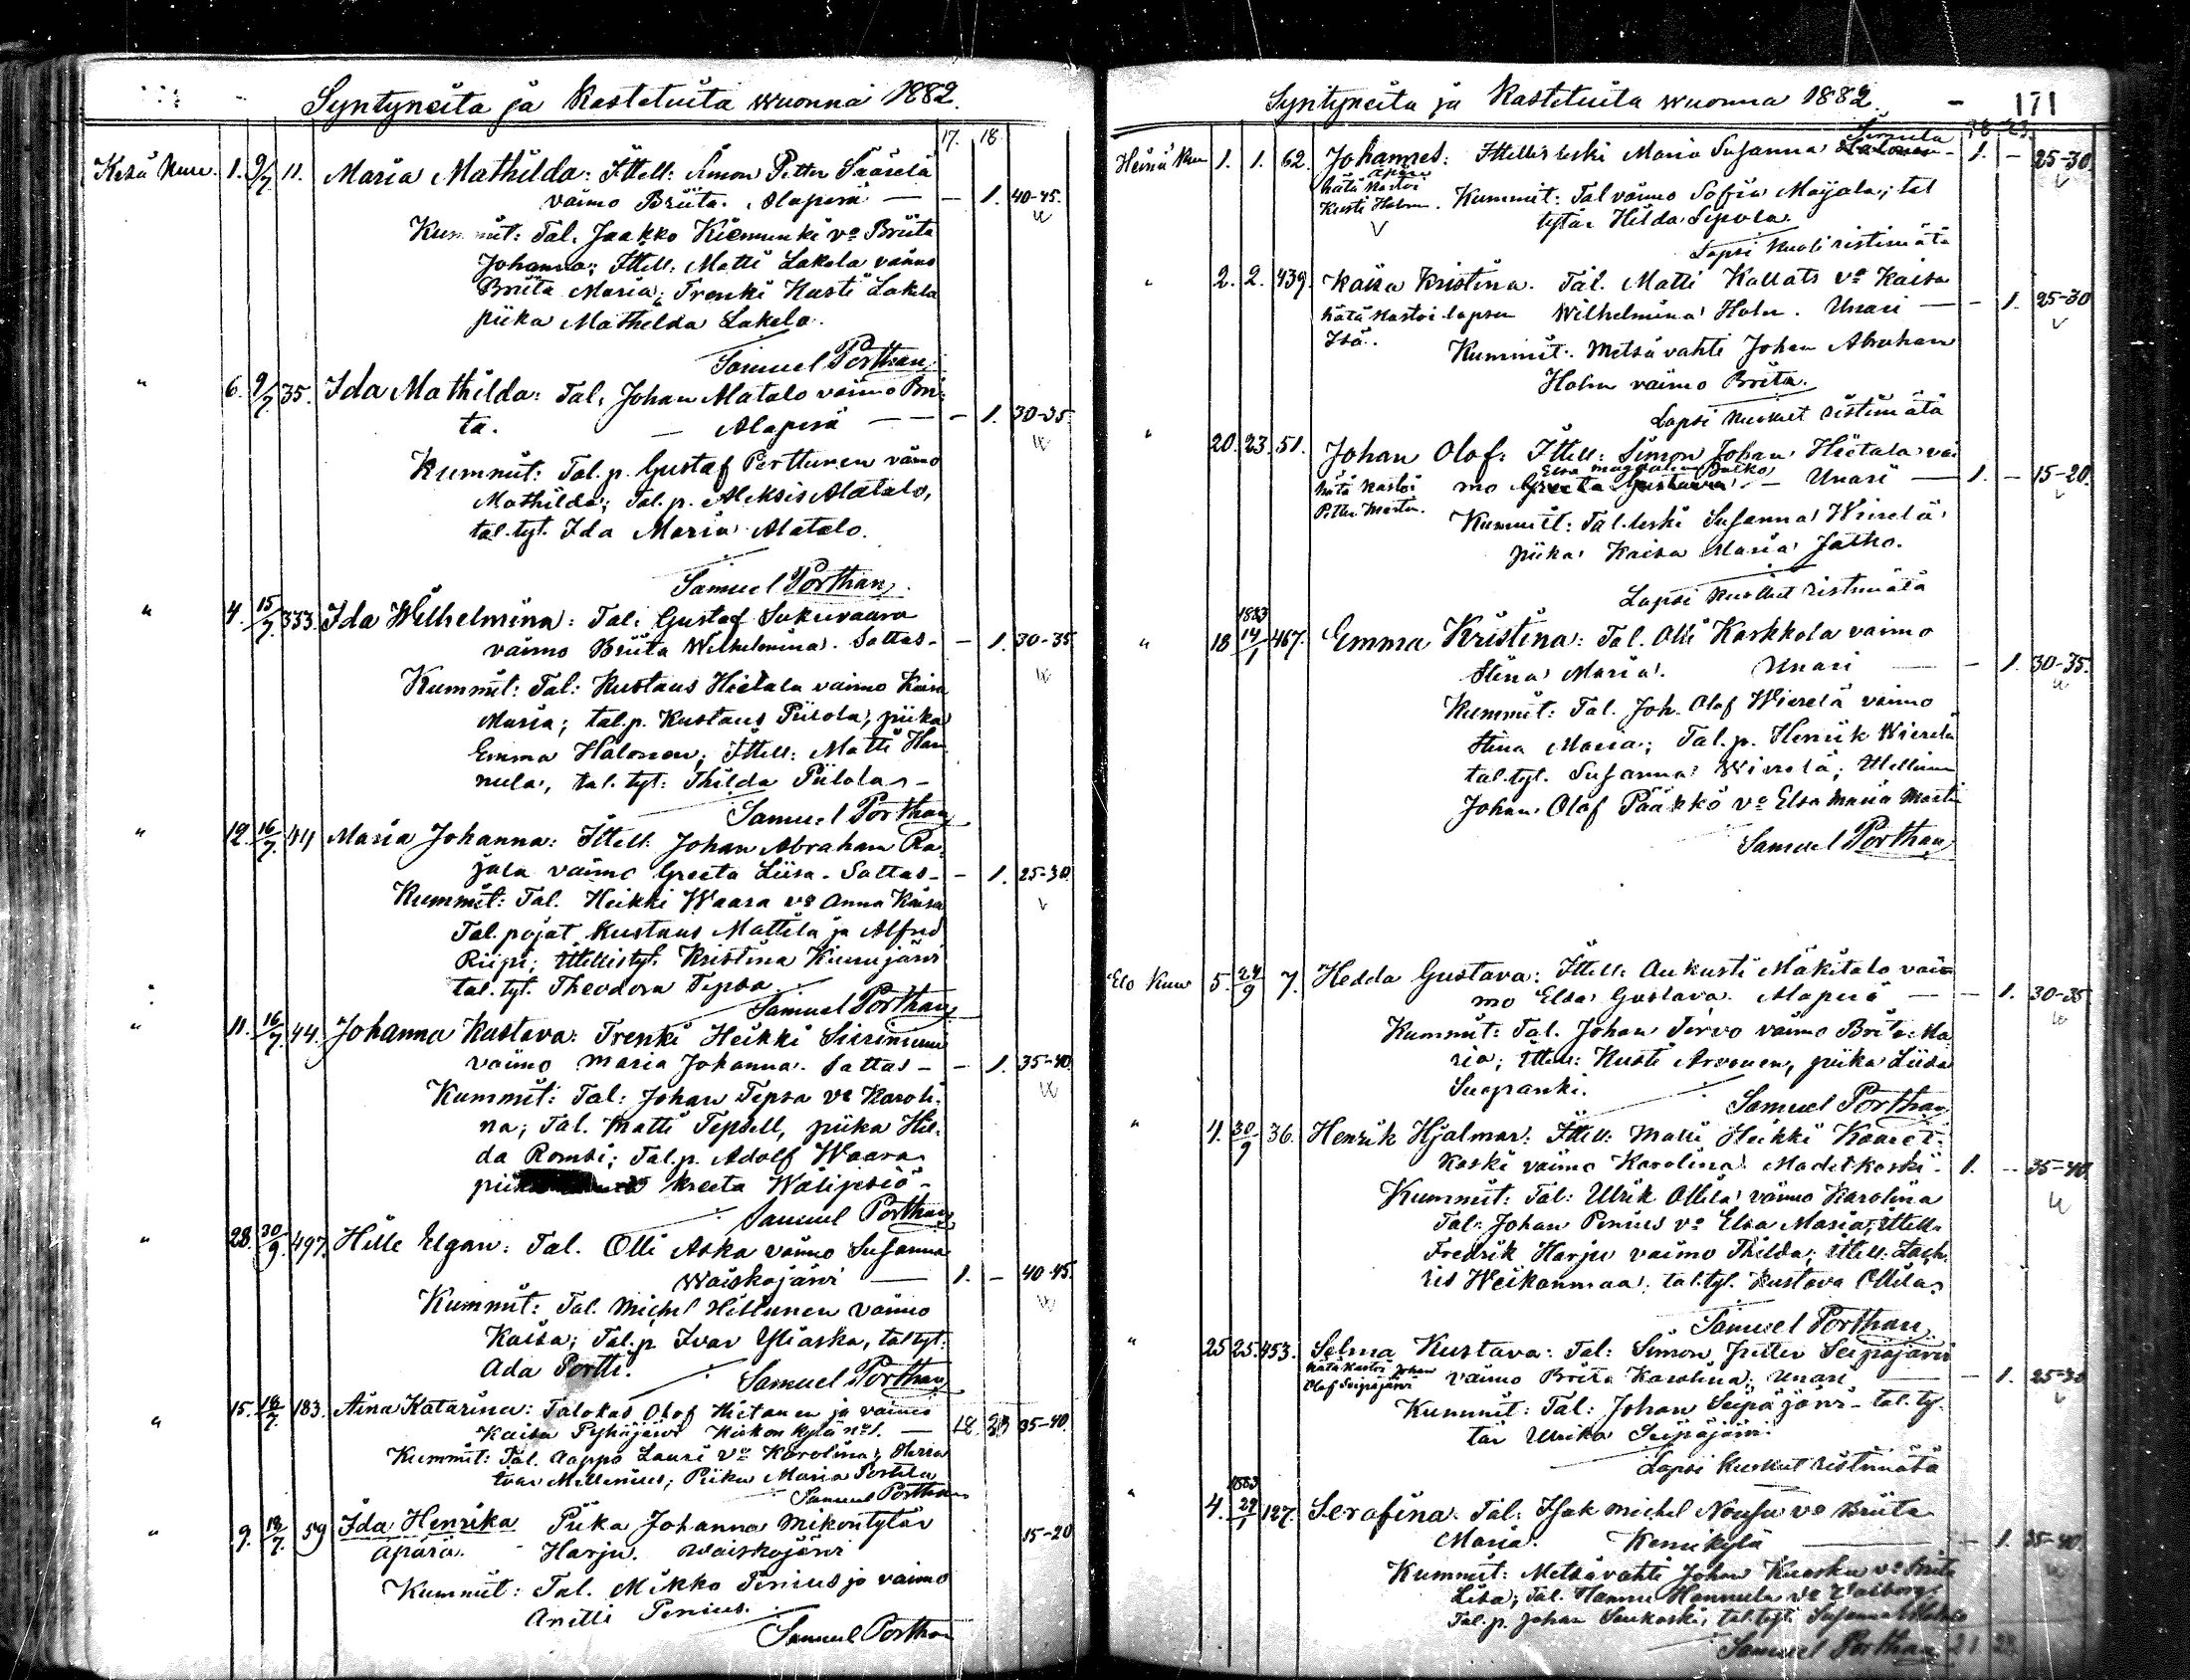 Syntyneitä ja Kastetuita wuonna 1882.
17. 18.
Kesä Kuu. 1. 9/7 11. Maria Mathilda: Ittell: Simon Petter Säärelä
vaimo Briita. Alaperä — — 1. 40-45.
Kummit: Tal. Jaakko Kiemunki vo Briita
Johanna; Ittell: Matti Lakela vaimo
Briita Maria; Trenki Kusti Lakela
piika Mathilda Lakela.
Samuel Porthan
" 6. 9/7 35. Ida Mathilda: Tal. Johan Alatalo vaimo Bri-
ta. — Alaperä — — 1. 30-35.
Kummit: Tal. p. Gustaf Perttunen vaimo
Mathilda; Tal. p. Aleksis Alatalo,
tal. tyt. Ida Maria Alatalo.
Samuel Porthan
" 4. 15/7 333. Ida Wilhelmina: Tal. Gustaf Sukuvaara
vaimo Briita Wilhelmina. Sattas- — 1. 30-35
Kummit: Tal: Kustaus Hietala vaimo Kaisa
Maria; tal. p. Kustaus Piilola, piika
Emma Halonen; Ittell: Matti Han
nula, tal. tyt: Thilda Piilola -
Samuel Porthan
" 12. 16/7 44 Maria Johanna: Ittell: Johan Abraham Ra-
jala vaimo Greeta Liisa. Sattas- — 1. 25-30.
Kummit: Tal. Heikki Waara vo Anna Kaisa
Tal. pojat Kustaus Mattila ja Alfred
Riipi; Ittellistyt. Kristina Kiurujärvi
tal. tyt. Theodora Tepsa.
Samuel Porthan
" 11. 16/7 44. Johanna Kustava: Trenki Heikki Siiriniemi
vaimo Maria Johanna. Sattas - — 1. 35-40.
Kummit: Tal: Johan Tepsa vo Karoli-
na; Tal. Matti Tepsell, piika Hil-
da Rombi; Tal. p. Adolf Waara
piika Kreeta Wälipesiö -
Samuel Porthan
" 28. 30/9 497. Hille Elgan: Tal. Olli Aska vaimo Susanna
Waiskojärvi — 1. — 40-45.
Kummit: Tal. Michel Hiltunen vaimo
Kaisa; Tal. p. Ivar Yliaska, tal tyt.
Ada Portti.
Samuel Porthan
" 15. 18/7 183. Aina Katarina: Talokas Olof Hietanen ja vaimo
Kaisa Pyhäjärvi Kirkon kylä no 1. — 18 23 35-40.
Kummit: Tal. Aappo Lauri vo Karolina;
Ivar Mellenius; Piika Maria Porttila
Samuel Porthan
" 9. 18/7 59 Ida Henrika Piika Johanna Mikontytär
äpärä. Harju. Waiskojärvi 15-20
Kummit: Tal. Mikko Penius ja vaimo
Anetti Penius.
Samuel Porthan
Syntyneitä ja Kastetuita wuonna 1882. — 171
18 23.
Sirvula
Heinä Kuu 1. 1. 62. Johannes: Ittellis leski Maria Susanna 1. — 25-30.
äpärä
hätä kastoi
Kusti Holm. Kummit: Tal vaimo Sofia Mayala; tal
tytär Hilda Sepola.
Lapsi kuoli ristimätä
" 2. 2. 439. Kaisa Kristina. Tal. Matti Kallats vo Kaisa
hätä kastoi lapsen Wilhelmina Holm. Unari — — 1. 25-30
Isä. Kummit: Metsävahti Johan Abraham
Holm vaimo Brita.
Lapsi kuollut ristimätä
" 20. 23. 51. Johan Olof: Ittell: Simon Johan Hietala vai
Elsa Magdalena Pulko
hätä kastoi mo Greeta Gustaava. — Unari — 1. — 15-20.
Petter Martin. Kummit: Tal. leski Susanna Wierelä
piika Kaisa Maria Jatko.
Lapsi kuollut ristimätä
1883
" 18 14/1 467. Emma Kristina: Tal. Olli Karkkola vaimo
Stina Maria. Unari — — 1. 30-35.
Kummit: Tal. Joh. Olof Wierelä vaimo
Stina Maria; Tal. p. Henrik Wierelä
tal. tyt. Susanna Wierelä; Ittellinen
Johan Olof Pääkkö vo Elsa Maria Martin
Samuel Porthan
Elo Kuu 5. 24/9 7. Hedda Gustava: Ittell: Aukusti Mäkitalo vai
mo Elsa Gustava. Alaperä — — 1. 30-35
Kummit: Tal. Johan Tervo vaimo Brita Ma
ria; Ittell: Kusti Arvonen, piika Liisa
Suopanki.
Samuel Porthan
" 4. 30/9 36. Henrik Hjalmar: Ittell: Matti Heikki Kaaret-
koski vaimo Karolina. Madetkoski - 1. — 35-40.
Kummit: Tal: Ulrik Ollila vaimo Karolina
Tal: Johan Penius vo Elsa Maria; Ittell.
Fredrik Harju vaimo Thilda; Ittell: Zach-
ris Weikanmaa; tal. tyt. Kustava Ollila.
Samuel Porthan
" 25 25. 453. Selma Kustava: Tal: Simon Petter Seipäjärvi
hätä kastoi Johan
Olof Seipäjärvi vaimo Brita Karolina; Unari — — 1. 25-30
Kummit: Tal: Johan Seipäjärvi - tal. ty
tär Ulrika Seipäjärvi.
Lapsi kuollut ristimätä
1883
" 4. 29/1 127. Serafina. Tal: Isak Michel Nousu vo Briita
Maria. Kemikylä — 1. 35-40.
Kummit: Metsävahti Johan Kuosku vo Brita
Lisa; Tal. Hannu Hannula vo Walborg;
Tal. p. Johan Saukoski; tal. tyt. Susanna
Samuel Porthan 21. 28.